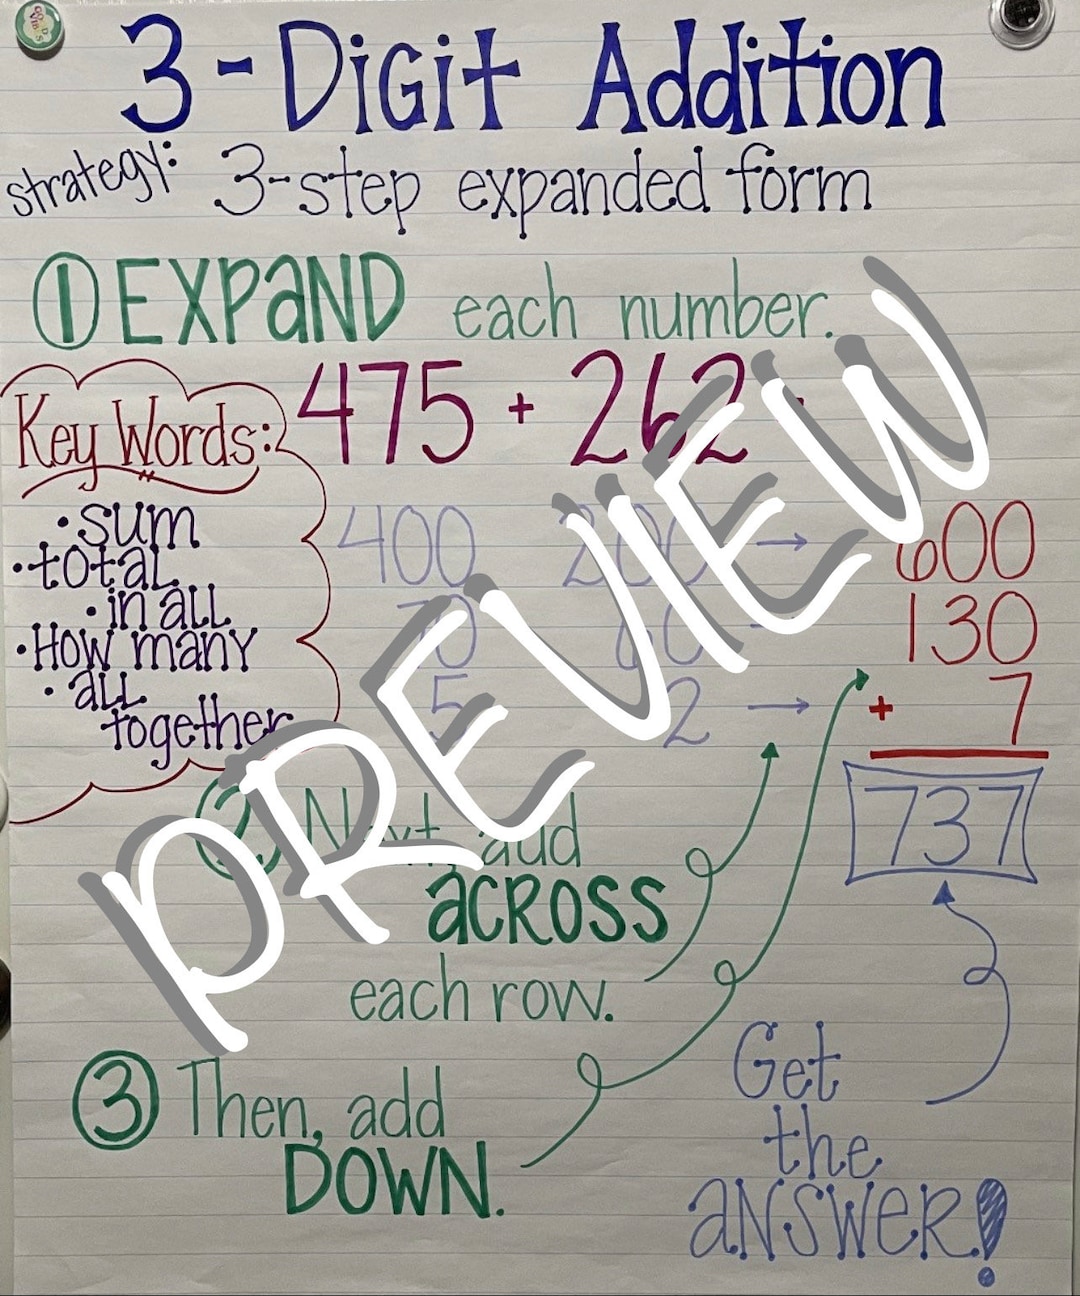 3-Digit Addition
strategy: 3-step expanded form
① EXPAND each number.
475 + 262
Key Words:
• sum
• total
• in all
• How many
• all
together
400 200 → 600
70 60 → 130
5 2 → + 7
737
② Next, add
across
each row.
③ Then, add
DOWN.
Get
the
answer!
PREVIEW